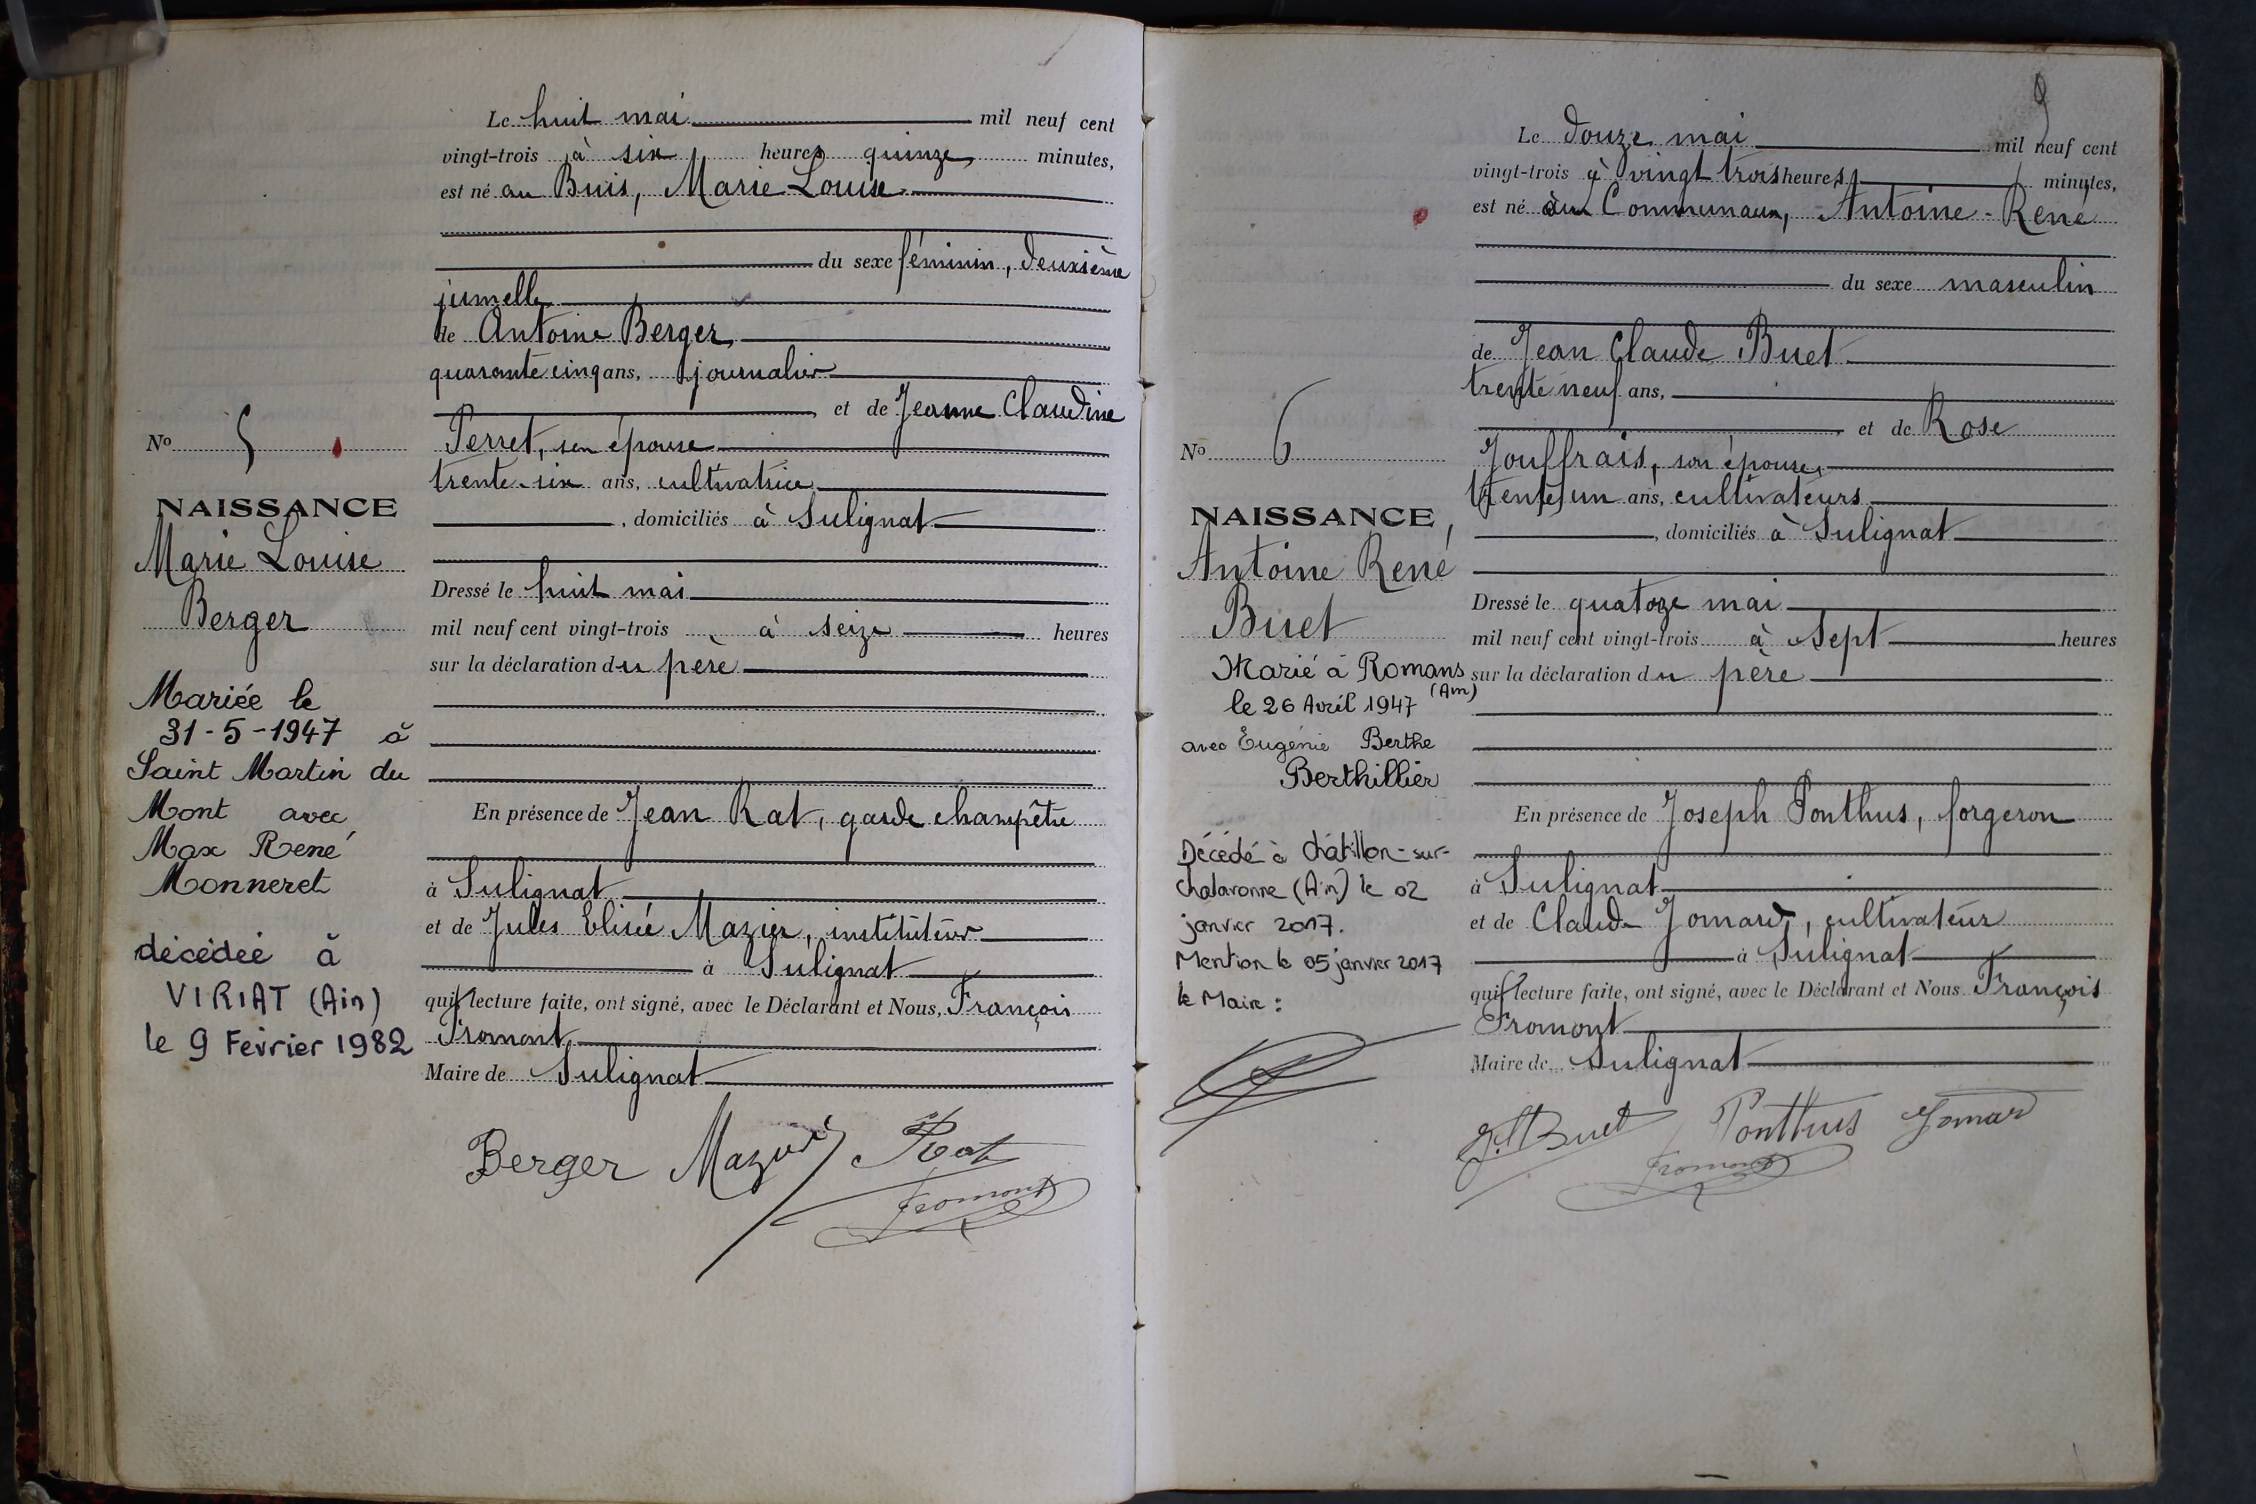 Le huit mai mil neuf cent
vingt-trois à six heures quinze minutes,
est né au Buis, Marie Louise
du sexe féminin, deuxième
jumelle
de Antoine Berger,
quarante cinq ans, journalier
et de Jeanne Claudine
Perret, son épouse
trente-six ans, cultivatrice
, domiciliés à Sulignat
Dressé le huit mai
mil neuf cent vingt-trois à seize heures
sur la déclaration du père
En présence de Jean Rat, garde champêtre
à Sulignat
et de Jules Elisée Mazier, instituteur
à Sulignat
qui, lecture faite, ont signé, avec le Déclarant et Nous, François
Fromont
Maire de Sulignat
Berger Mazier Rat
Fromont
No 5
NAISSANCE
Marie Louise
Berger
Mariée le
31-5-1947 à
Saint Martin du
Mont avec
Max René
Monneret
décédée à
VIRIAT (Ain)
le 9 Février 1982
9
Le douze mai mil neuf cent
vingt-trois à vingt trois heures minutes,
est né aux Communaux, Antoine-René
du sexe masculin
de Jean Claude Buet
trente neuf ans,
et de Rose
Jouffrais, son épouse,
trente un ans, cultivateurs
, domiciliés à Sulignat
Dressé le quatoze mai
mil neuf cent vingt-trois à sept heures
sur la déclaration du père
En présence de Joseph Ponthus, forgeron
à Sulignat
et de Claude Jomard, cultivateur
à Sulignat
qui, lecture faite, ont signé, avec le Déclarant et Nous François
Fromont
Maire de Sulignat
J. Buet Ponthus Jomard
Fromont
No 6
NAISSANCE
Antoine René
Buet
Marié à Romans
(Ain)
le 26 Avril 1947
avec Eugénie Berthe
Berthillier
Décédé à Châtillon-sur-
Chalaronne (Ain) le 02
janvier 2017.
Mention le 05 janvier 2017
le Maire :